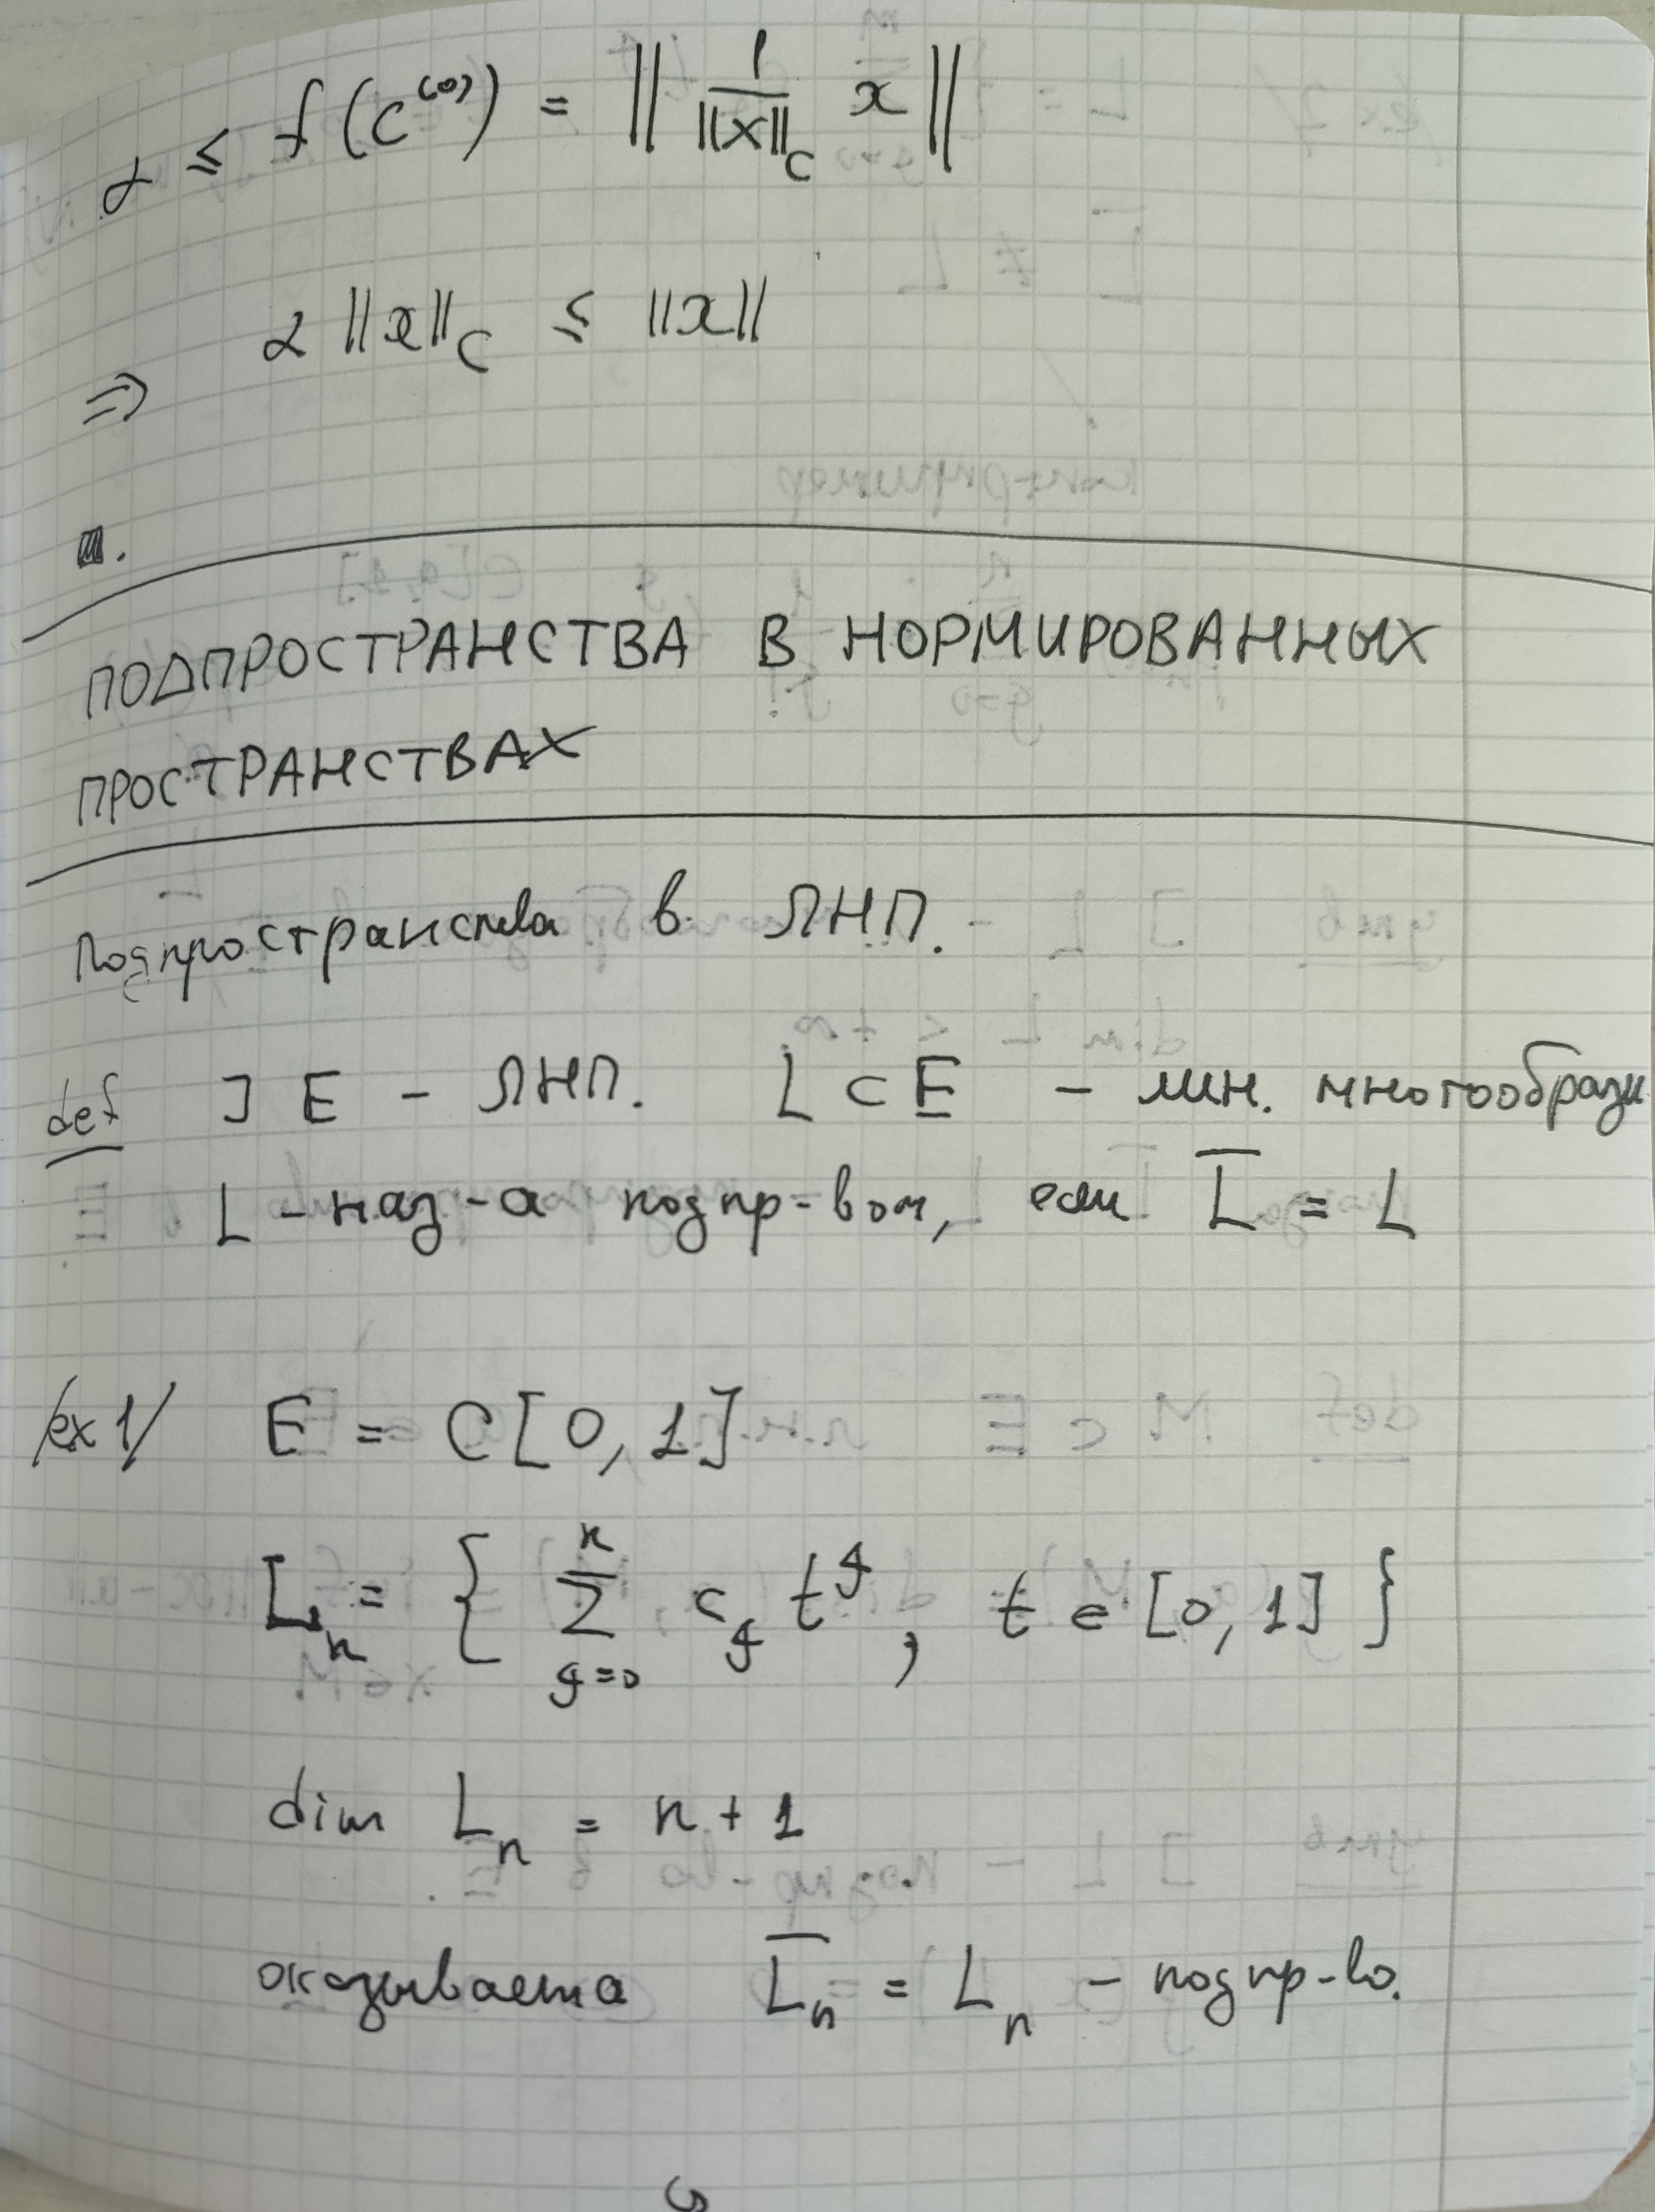 α ≤ f(c⁽⁰⁾) = || 1/||x||_C x ||
⇒ α ||x||_C ≤ ||x||
ПОДПРОСТРАНСТВА В НОРМИРОВАННЫХ
ПРОСТРАНСТВАХ
Подпространства в ЛНП.
def ] E - ЛНП. L ⊂ E - лин. многообрази
L - наз-а подпр-вом, если L̅ = L
/ex 1/ E = C[0,1]
L_n = { ∑_{j=0}^{n} c_j t^j, t ∈ [0,1] }
dim L_n = n + 1
оказывается L̅_n = L_n - подпр-во.